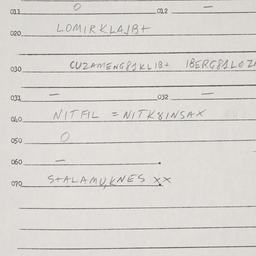 011 O 012 —
020 LOMIRKLAJB+
030 CUZAMENG81KLIB+ IBERG81LOZ
031 — 032 —
040 NITFIL = NITK8INSAX
050 O
060 —
070 S+ALAMU,KNES XX